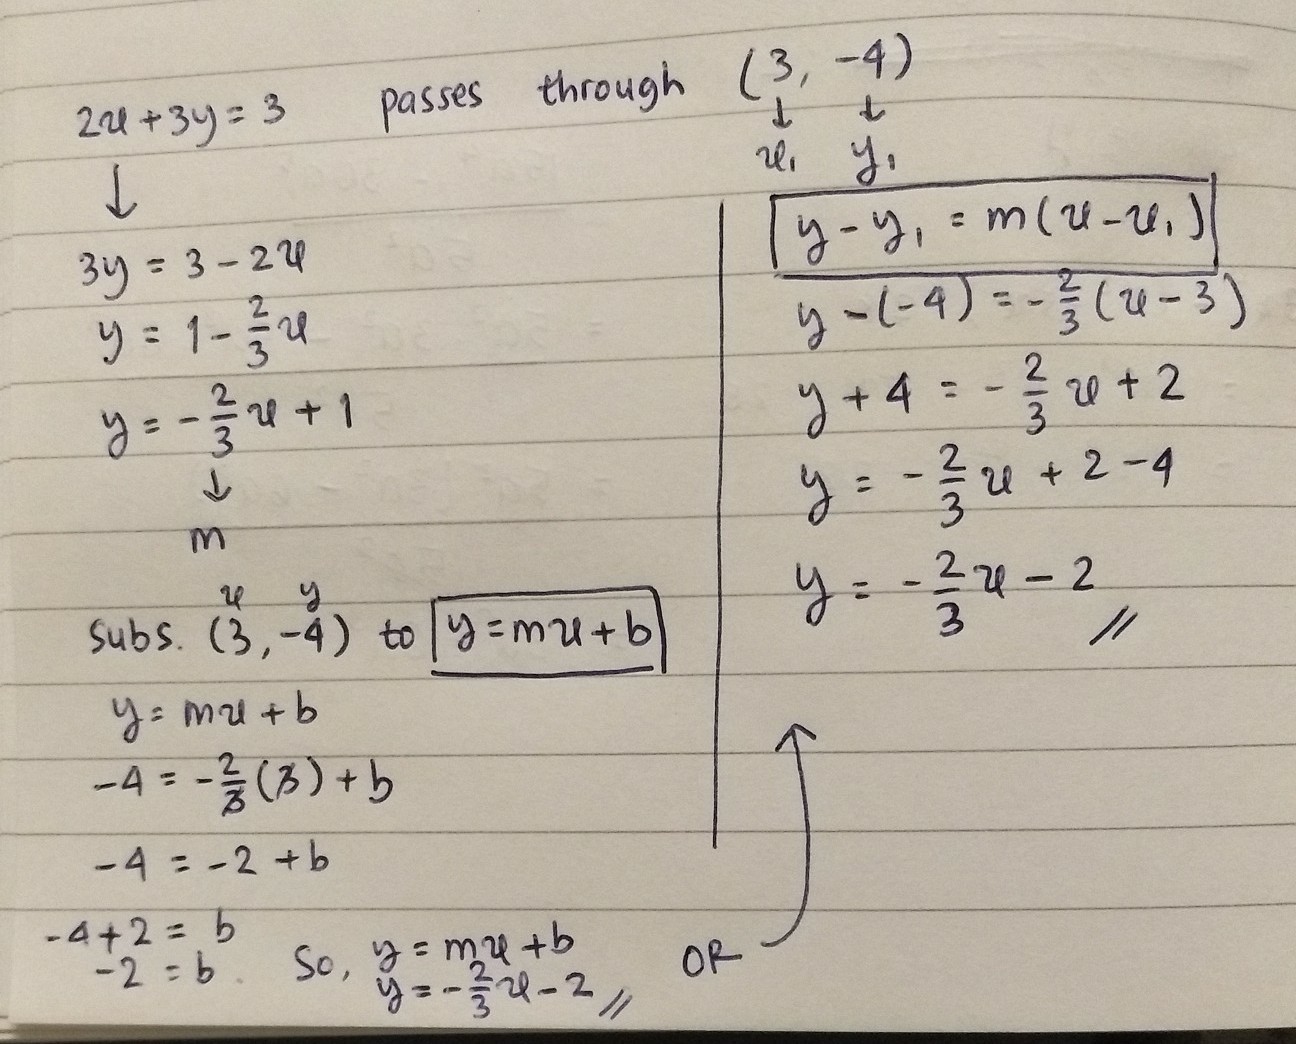 2x + 3y = 3 passes through (3, -4)
↓ ↓
x₁ y₁
↓
3y = 3 - 2x
y = 1 - 2/3 x
y = - 2/3 x + 1
↓
m
x y
subs. (3, -4) to y = mx + b
y = mx + b
-4 = - 2/3 (3) + b
-4 = -2 + b
-4 + 2 = b
-2 = b
So, y = mx + b
y = - 2/3 x - 2 //
OR
y - y₁ = m(x - x₁)
y - (-4) = - 2/3 (x - 3)
y + 4 = - 2/3 x + 2
y = - 2/3 x + 2 - 4
y = - 2/3 x - 2 //